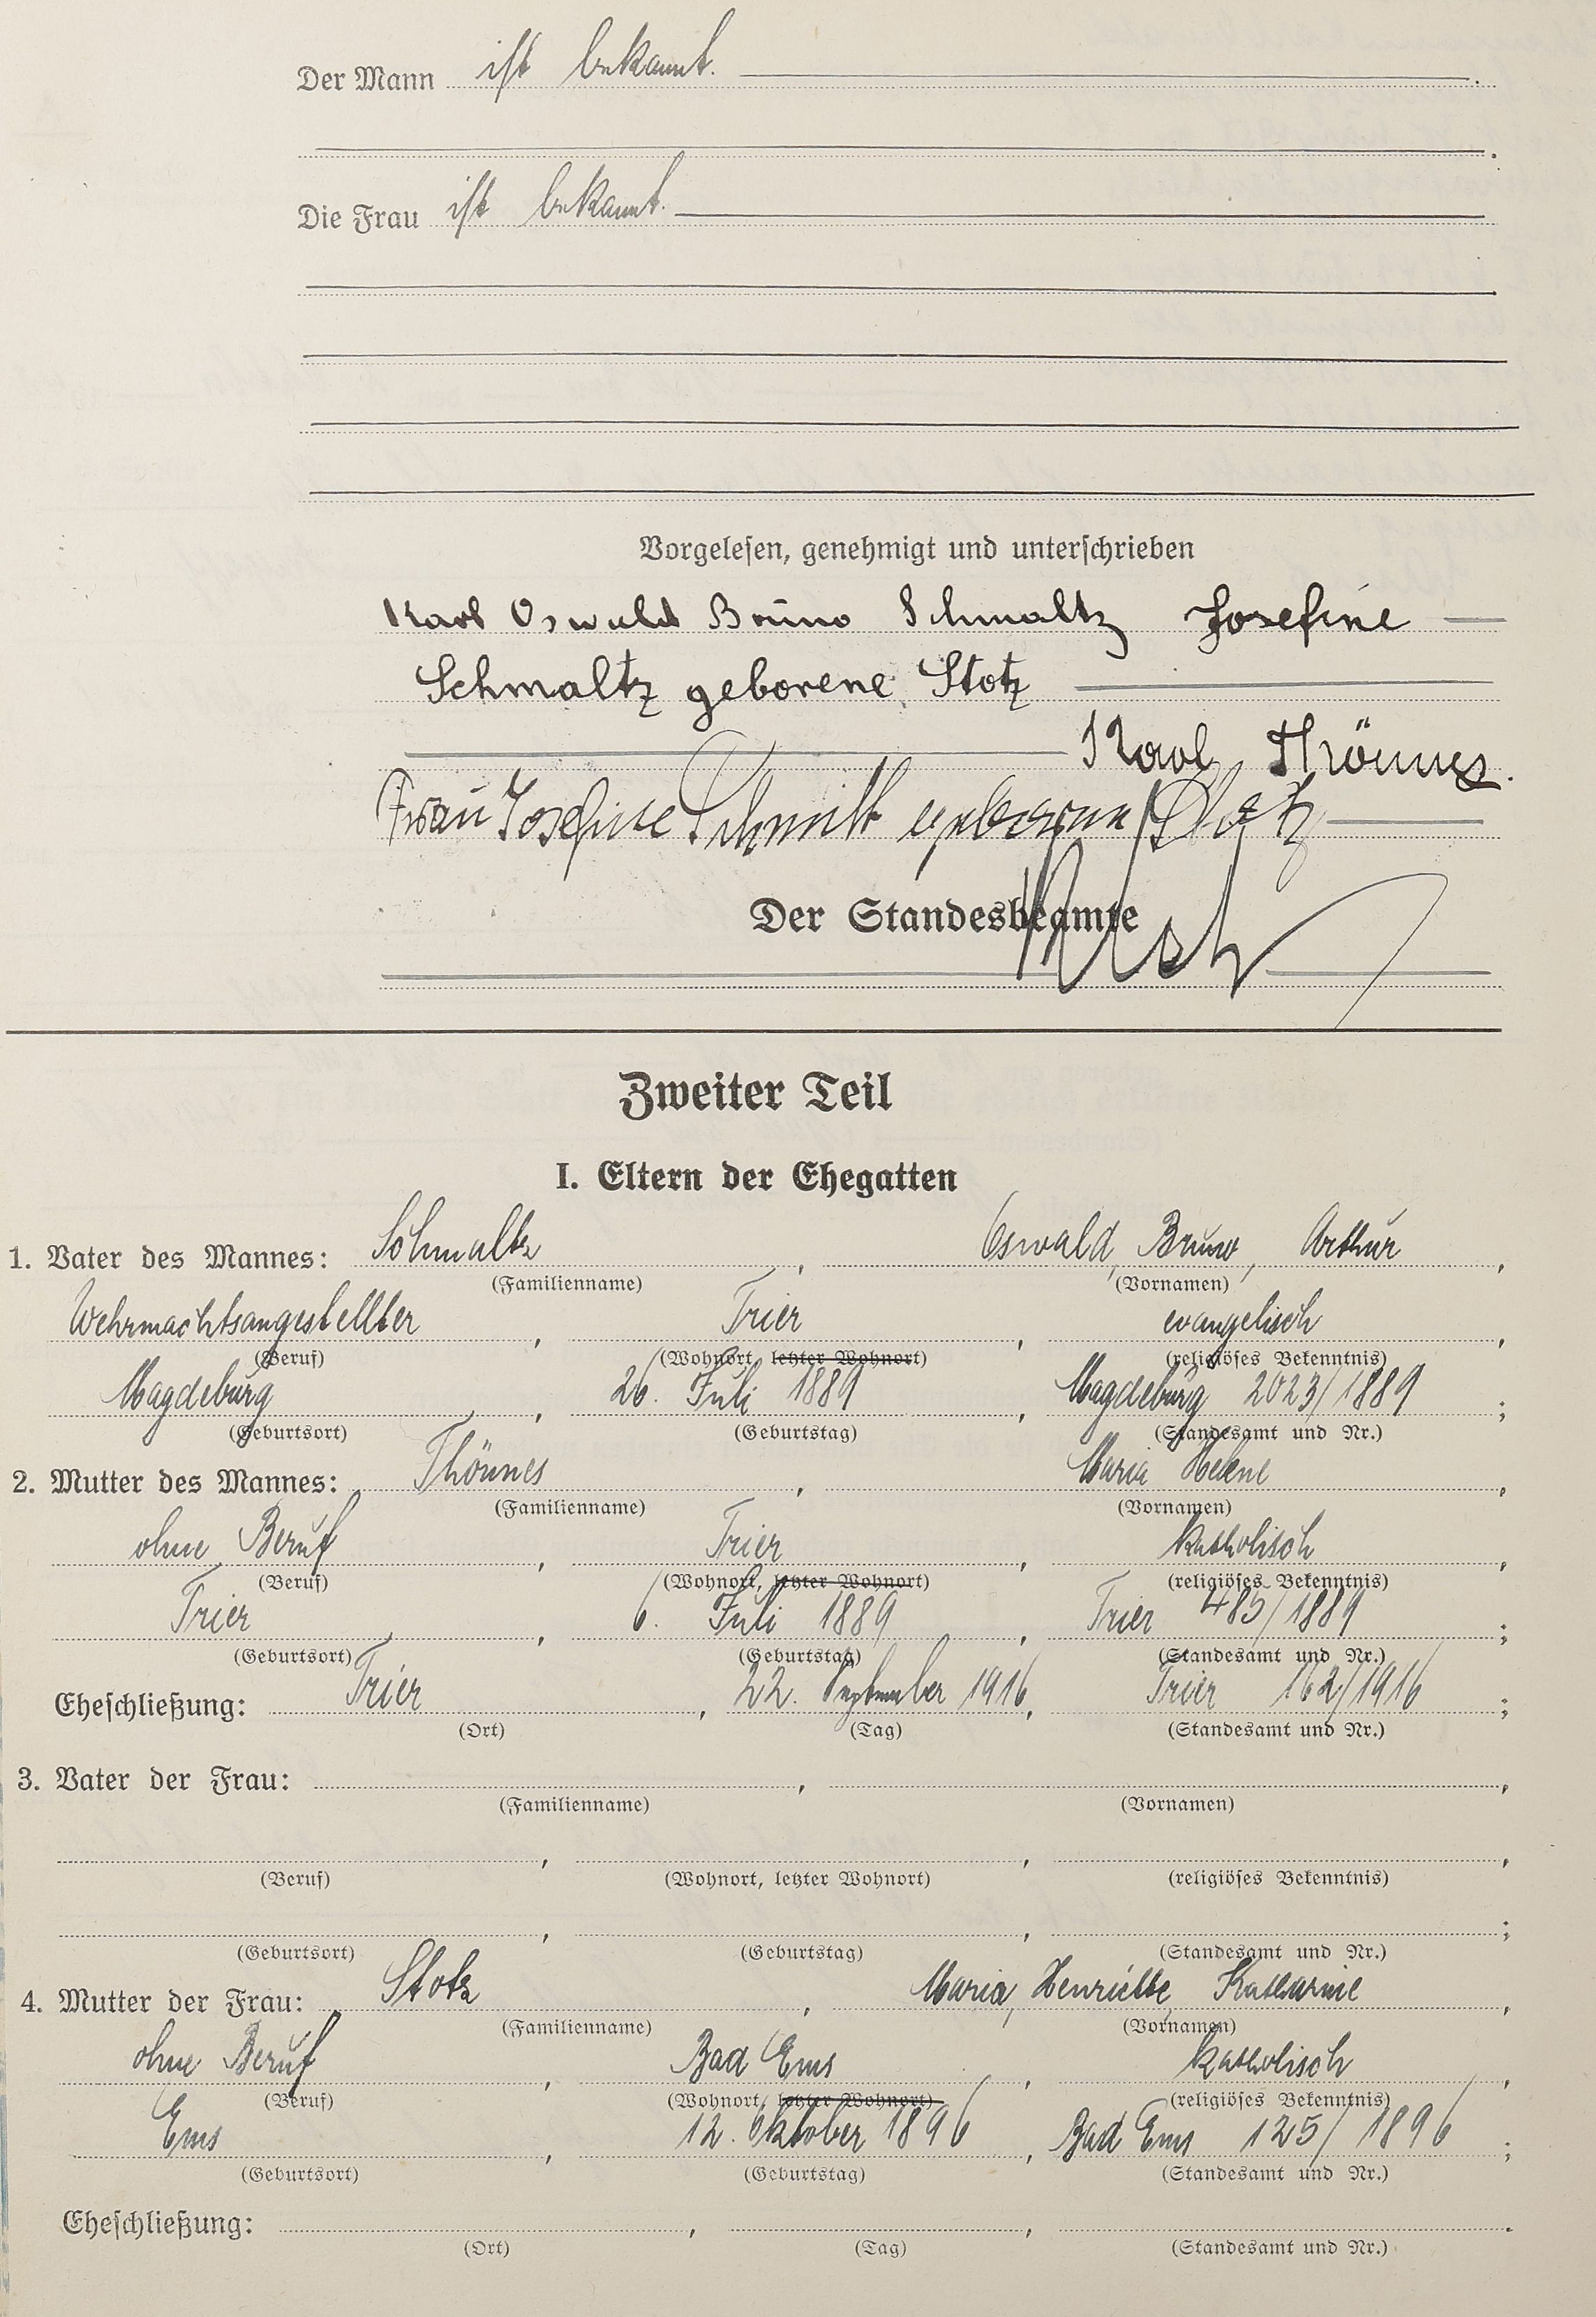 Der Mann ist bekannt.
Die Frau ist bekannt.
Vorgelesen, genehmigt und unterschrieben
Karl Oswald Bruno Schmaltz Josefine
Schmaltz geborene Stotz
Karl Thönnes.
Frau Josefine Schmitt geborene Stotz
Der Standesbeamte
Zweiter Teil
I. Eltern der Ehegatten
1. Vater des Mannes: Schmaltz, Oswald, Bruno, Arthur,
(Familienname) (Vornamen)
Wehrmachtsangestellter, Trier, evangelisch,
(Beruf) (Wohnort, letzter Wohnort) (religiöses Bekenntnis)
Magdeburg, 26. Juli 1889, Magdeburg 2023/1889;
(Geburtsort) (Geburtstag) (Standesamt und Nr.)
2. Mutter des Mannes: Thönnes, Maria Helene,
(Familienname) (Vornamen)
ohne Beruf, Trier, katholisch,
(Beruf) (Wohnort, letzter Wohnort) (religiöses Bekenntnis)
Trier, 6. Juli 1889, Trier 485/1889;
(Geburtsort) (Geburtstag) (Standesamt und Nr.)
Eheschließung: Trier, 22. September 1916, Trier 162/1916;
(Ort) (Tag) (Standesamt und Nr.)
3. Vater der Frau: , ,
(Familienname) (Vornamen)
, , ,
(Beruf) (Wohnort, letzter Wohnort) (religiöses Bekenntnis)
, , ;
(Geburtsort) (Geburtstag) (Standesamt und Nr.)
4. Mutter der Frau: Stotz, Maria, Henriette, Katharine,
(Familienname) (Vornamen)
ohne Beruf, Bad Ems, katholisch,
(Beruf) (Wohnort, letzter Wohnort) (religiöses Bekenntnis)
Ems, 12. Oktober 1896, Bad Ems 125/1896;
(Geburtsort) (Geburtstag) (Standesamt und Nr.)
Eheschließung: , , .
(Ort) (Tag) (Standesamt und Nr.)